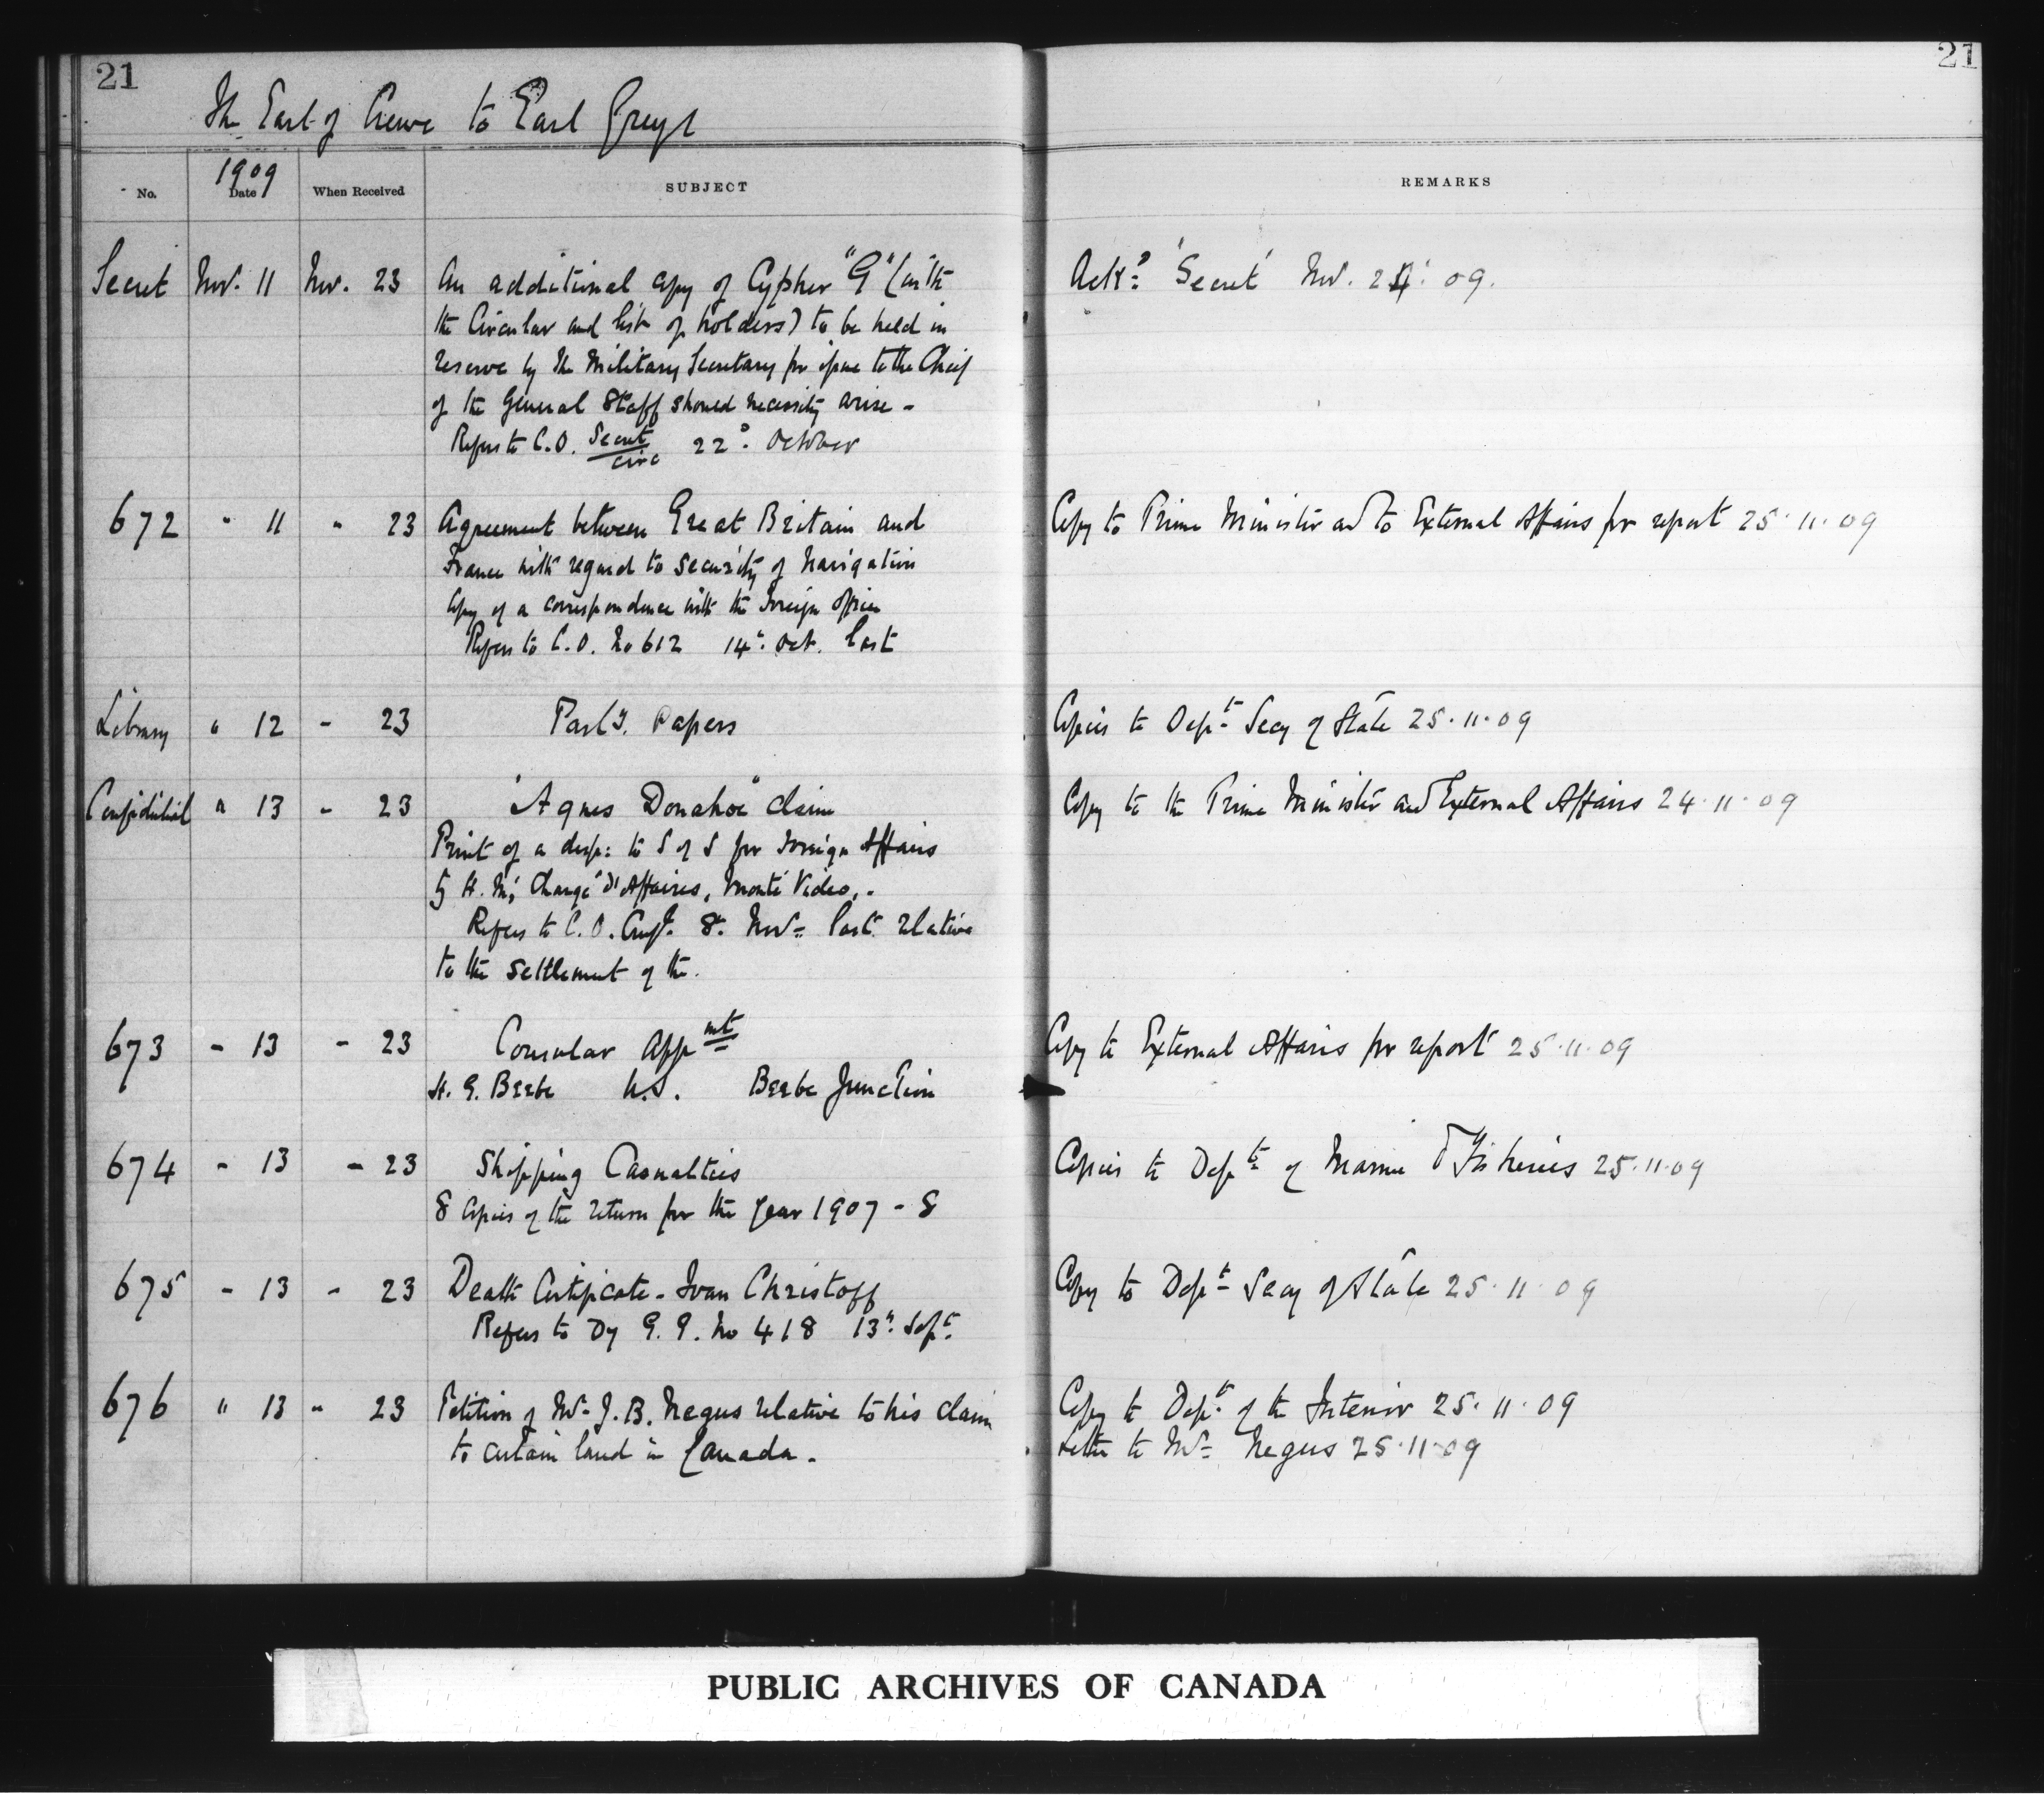 21
21
The Earl of Crewe to Earl Grey
No. 1909 Date When Received SUBJECT REMARKS
Secret Nov. 11 Nov. 23 An additional copy of Cypher "G" (with Ackd. 'Secret' Nov. 24: 09.
the Circular and list of holders) to be held in
reserve by the Military Secretary for issue to the Chief
of the General Staff should necessity arise -
Refers to C.O. Secret 22d. October
Circ
672 " 11 " 23 Agreement between Great Britain and Copy to Prime Minister and to External Affairs for report 25.11.09
France with regard to security of Navigation
Copy of a correspondence with the Foreign Office
Refers to C.O. No 612 14th. Oct. last
Library " 12 - 23 Parly. Papers Copies to Dept. Secy of State 25.11.09
Confidential " 13 - 23 "Agnes Donahoe" claim Copy to the Prime Minister and External Affairs 24.11.09
Print of a desp: to S of S for Foreign Affairs
by H.M's Chargé d'Affaires, Monte Video, -
Refers to C.O. Conf. 8. Nov. last relative
to the settlement of the.
673 - 13 - 23 Consular Appmt Copy to External Affairs for report 25.11.09
H. G. Beebe U.S. Beebe Junction
674 - 13 - 23 Shipping Casualties Copies to Dept. of Marine & Fisheries 25.11.09
8 Copies of the return for the year 1907 - 8
675 - 13 - 23 Death Certificate - Ivan Christoff Copy to Dept. Secy of State 25.11.09
Refers to Dy G.G. No 418 13th. Sept.
676 " 13 " 23 Petition of Mr J. B. Negus relative to his claim Copy to Dept. of the Interior 25.11.09
to certain land in Canada. Letter to Mr Negus 25.11.09
PUBLIC ARCHIVES OF CANADA